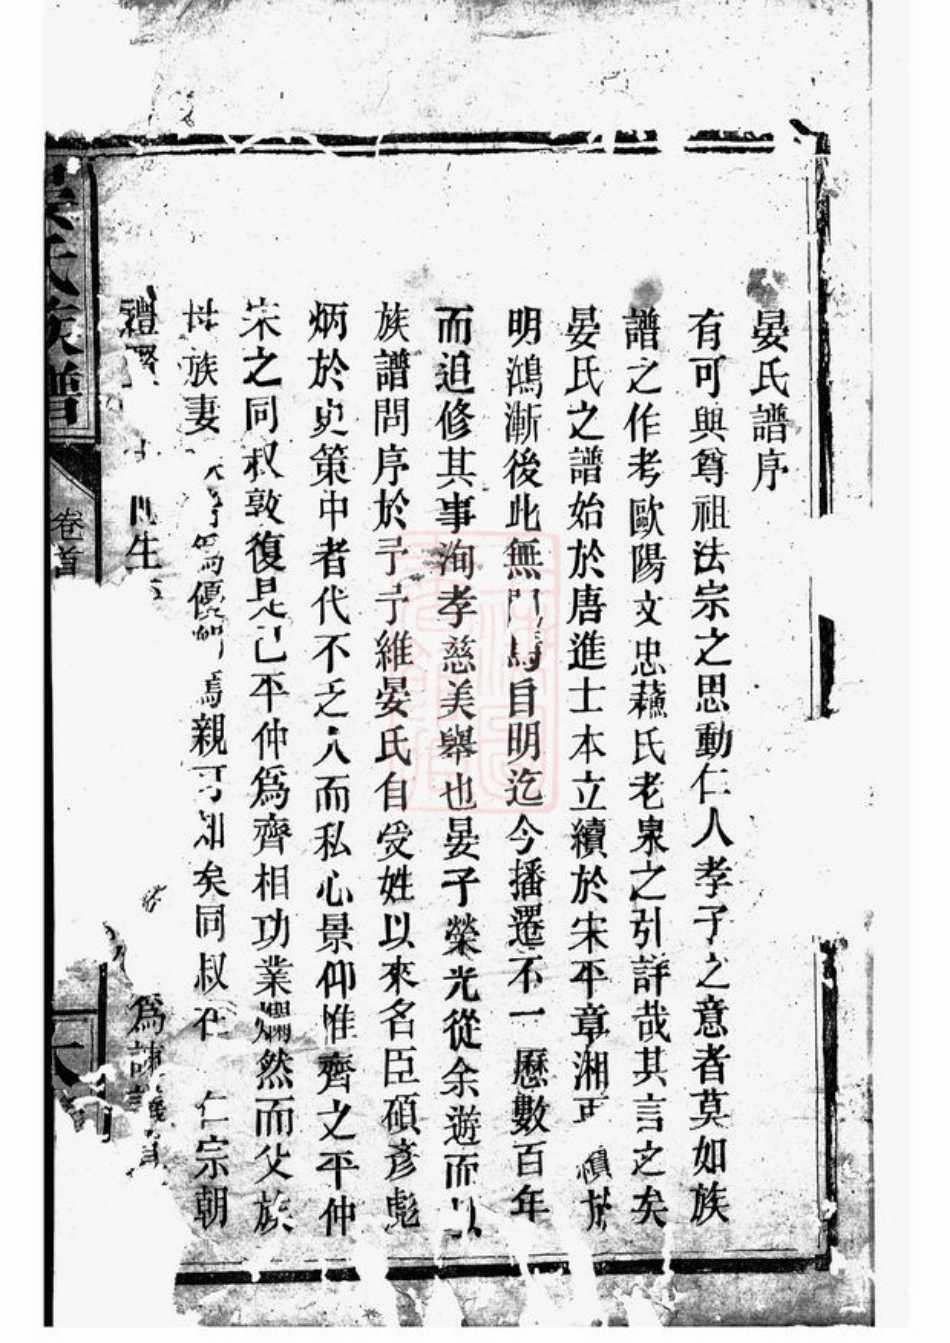 晏氏譜序
有可與尊祖法宗之思動仁人孝子之意者莫如族
譜之作考歐陽文忠蘓氏老泉之引詳哉其言之矣
晏氏之譜始於唐進士本立續於宋平章湘 續於
明鴻漸後此無 焉自明迄今播遷不一歷數百年
而追修其事洵孝慈美舉也晏子榮光從余遊而以
族譜問序於予予維晏氏自受姓以來名臣碩彥彪
炳於史策中者代不乏人而私心景仰惟齊之平仲
宋之同叔敦復是已平仲為齊相功業爛然而父族
母族妻 為優 焉親可知矣同叔在 仁宗朝
禮賢 生 為諫議
晏氏族譜
卷首